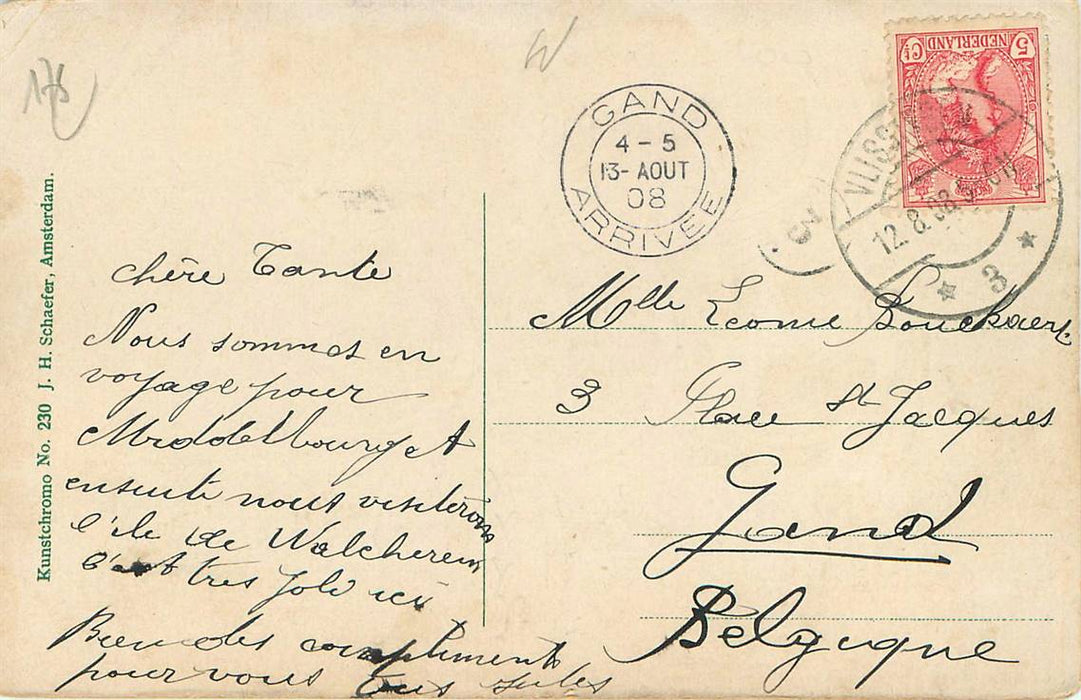 175
W
GAND
4-5
13-AOUT
08
ARRIVÉE
5 NEDERLAND CT
VLISS
12.8.08.5
3
3
Kunstchromo No. 230 J. H. Schaefer, Amsterdam.
chère Tante
Nous sommes en
voyage pour
Middelbourg et
ensuite nous visiterons
l'ile de Walcheren
c'est tres joli ici
Bien des compliments
pour vous tous
Mlle Leonie Bouckaert
3 Place St Jacques
Gand
Belgique